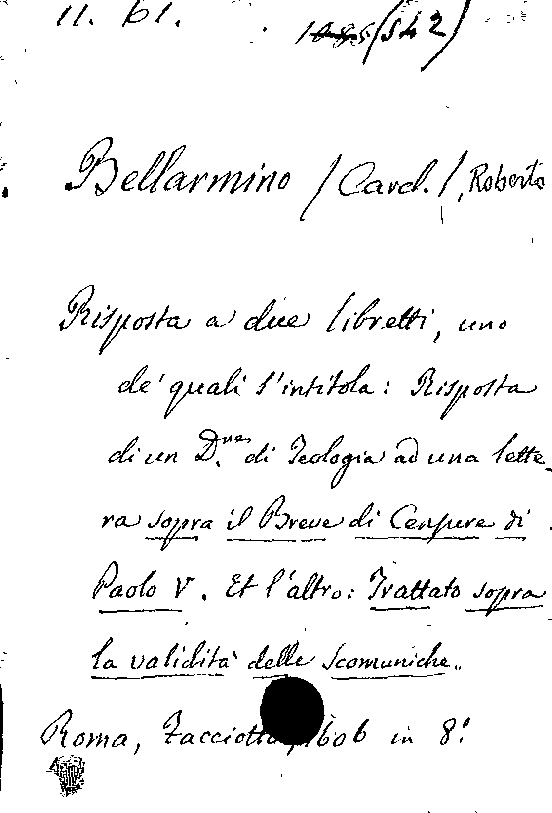 11. 61.
1085 (542)
Bellarmino / Card. /, Roberto
Risposta a due libretti, uno
de' quali s'intitola: Risposta
di un D.re di Teologia ad una lette_
ra sopra il Breve di Censure di
Paolo V. Et l'altro: Trattato sopra
la validità delle scomuniche.
Roma, Zacciotto, 1606 in 8º